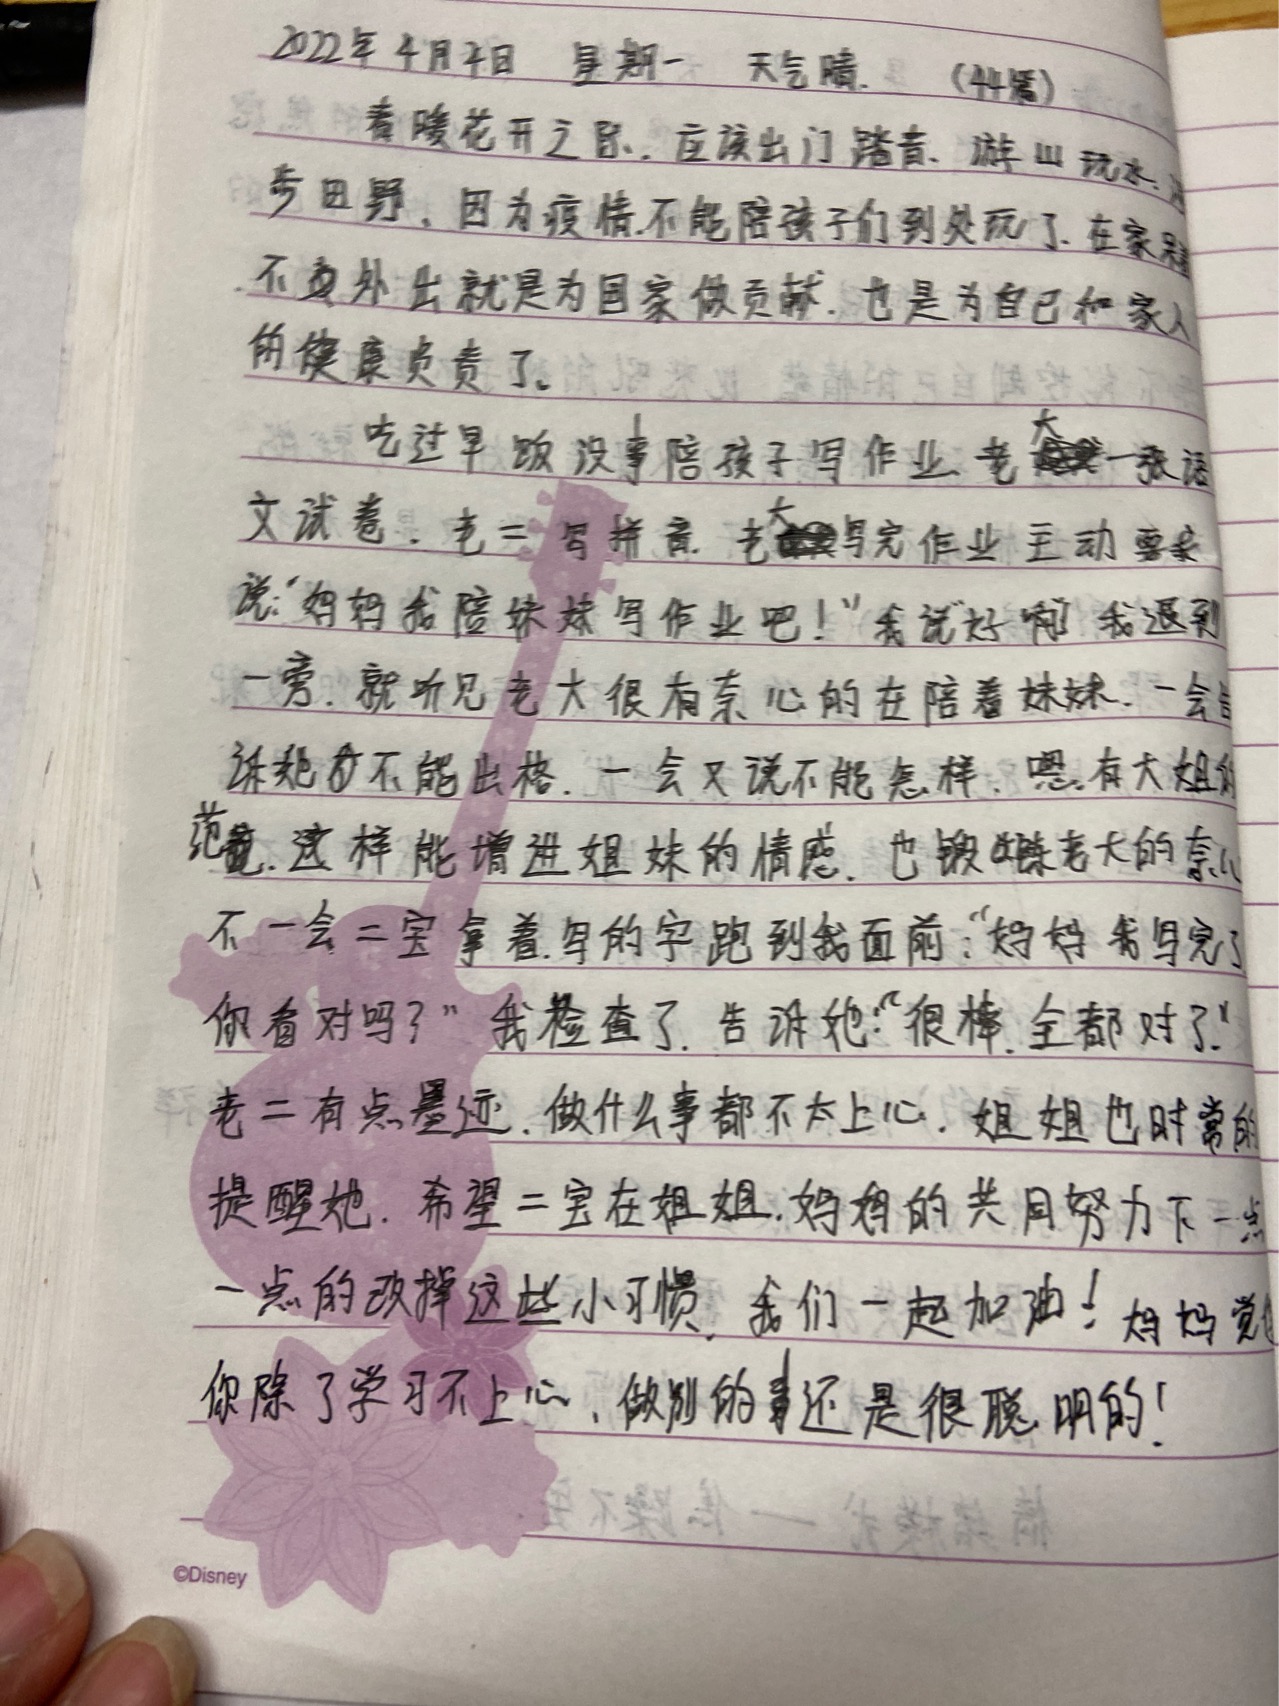 2022年4月4日 星期一 天气晴. (44篇)
春暖花开之际. 应该出门踏青. 游山玩水.
步田野, 因为疫情.不能陪孩子们到处玩了. 在家呆着
不要外出就是为国家做贡献. 也是为自己和家人
的健康负责了.
吃过早饭没事陪孩子写作业. 老大一张语
文试卷. 老二写拼音. 老大写完作业主动要求
说:“妈妈我陪妹妹写作业吧!”我说“好啊” 我退到
一旁. 就听见老大很有奈心的在陪着妹妹. 一会告
诉她不能出格. 一会又说不能怎样. 嗯. 有大姐的
范. 这样能增进姐妹的情感. 也锻炼老大的奈心
不一会二宝拿着写的字跑到我面前:“妈妈我写完了
你看对吗?” 我检查了. 告诉她:“很棒. 全都对了!”
老二有点墨迹. 做什么事都不太上心. 姐姐也时常的
提醒她. 希望二宝在姐姐.妈妈的共同努力下一点
一点的改掉这些小习惯. 我们一起加油! 妈妈觉
你除了学习不上心, 做别的事还是很聪明的!
©Disney